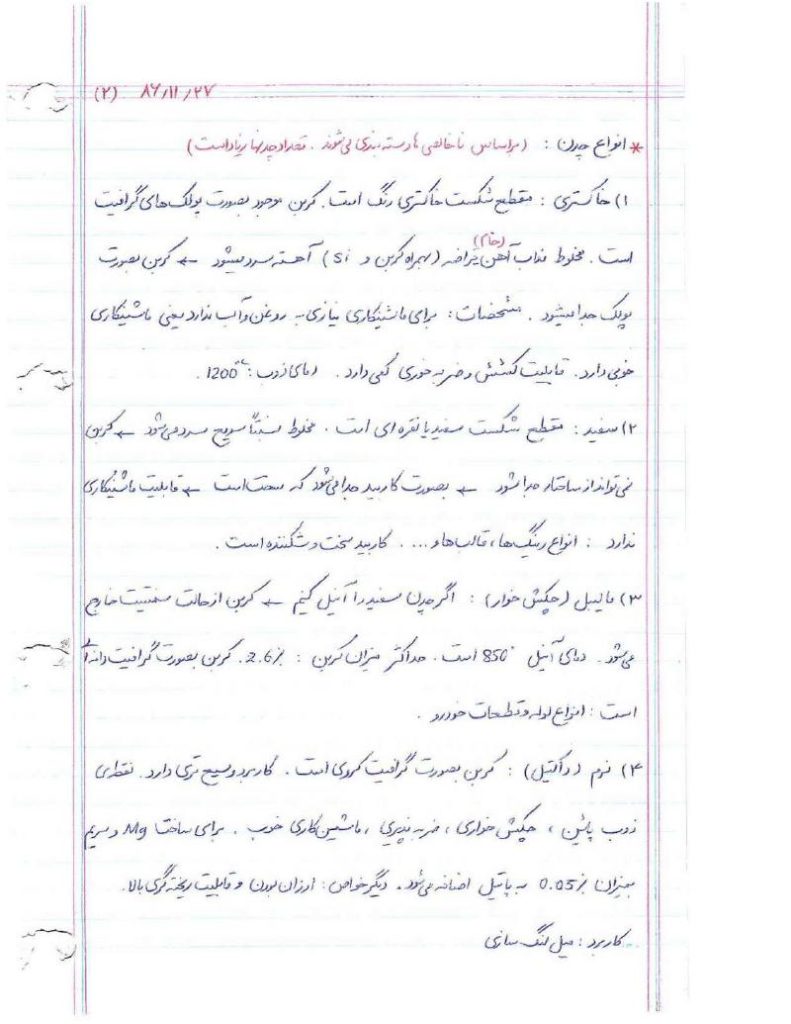 (۲) ۸۶/۱۱/۲۷
* انواع چدن : (براساس ناخالصی ها دسته بندی می شوند . تعداد چدنها زیاد است)
۱) خاکستری : مقطع شکست خاکستری رنگ است . کربن موجود بصورت پولک های گرافیت
است . مخلوط مذاب آهن (خام) قراضه (بهمراه کربن و Si) آهسته سرد میشود ← کربن بصورت
پولک جدا میشود . مشخصات : برای ماشینکاری نیازی به روغن و آب ندارد یعنی ماشینکاری
خوبی دارد . قابلیت کشش و ضربه خوری کمی دارد . دمای ذوب : 1200°c .
۲) سفید : مقطع شکست سفید یا نقره ای است . مخلوط نسبتاً سریع سرد می شود ← کربن
نمی تواند از ساختار جدا شود ← بصورت کاربید جدا می شود که سخت است ← قابلیت ماشینکاری
ندارد : انواع رینگ ها ، قالب ها و .... کاربید سخت و شکننده است .
۳) مالیبل (چکش خوار) : اگر چدن سفید را آنیل کنیم ← کربن از حالت سمنتیت خارج
می شود . دمای آنیل 850° است . حداکثر میزان کربن : 2.6٪ . کربن بصورت گرافیت دانه ای
است : انواع لوله و قطعات خودرو .
۴) نرم (داکتیل) : کربن بصورت گرافیت کروی است . کاربرد وسیع تری دارد . نقطه ی
ذوب پائین ، چکش خواری ، ضربه پذیری ، ماشین کاری خوب . برای ساخت Mg و سریم
بمیزان 0.05٪ به پاتیل اضافه می شود . دیگر خواص : ارزان بودن و قابلیت ریخته گری بالا .
کاربرد : میل لنگ سازی